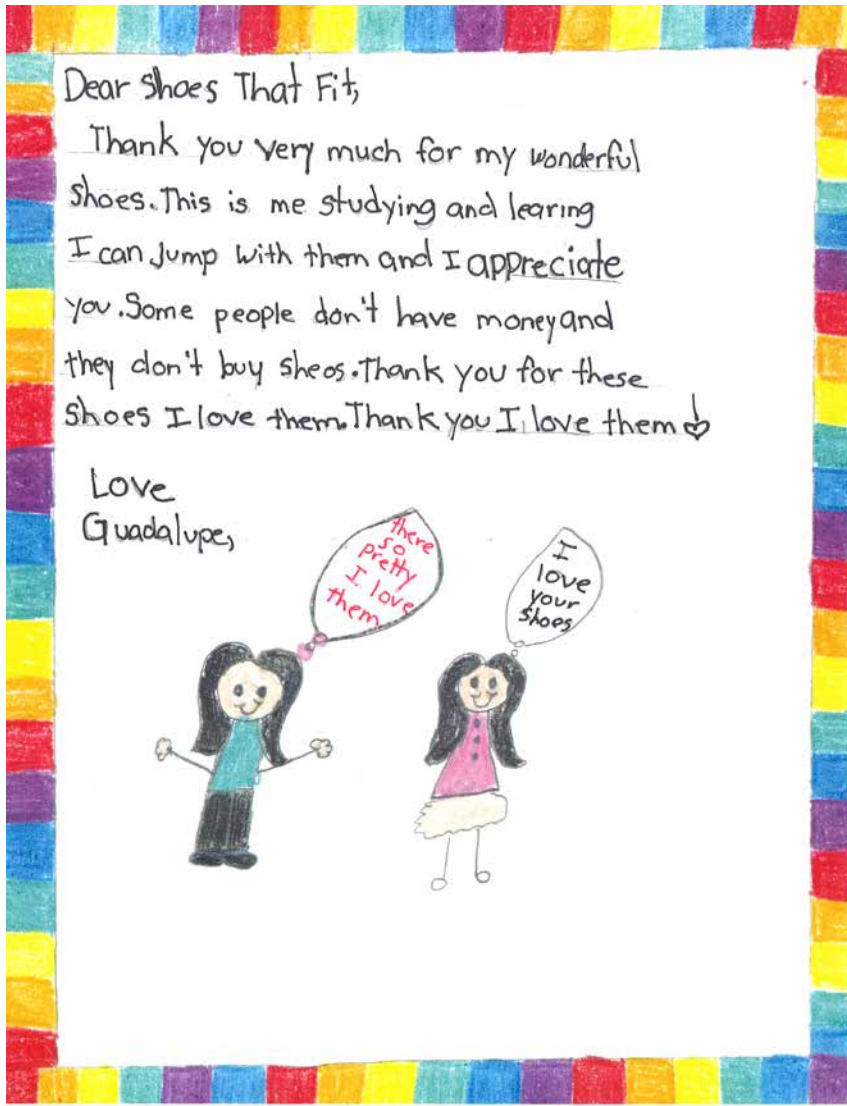 Dear Shoes That Fit,
Thank you very much for my wonderful
shoes. This is me studying and learing
I can Jump with them and I appreciate
you. Some people don't have money and
they don't buy sheos. Thank you for these
shoes I love them. Thank you I love them
Love
Guadalupe,
there
so
pretty
I love
them
I
love
your
shoes